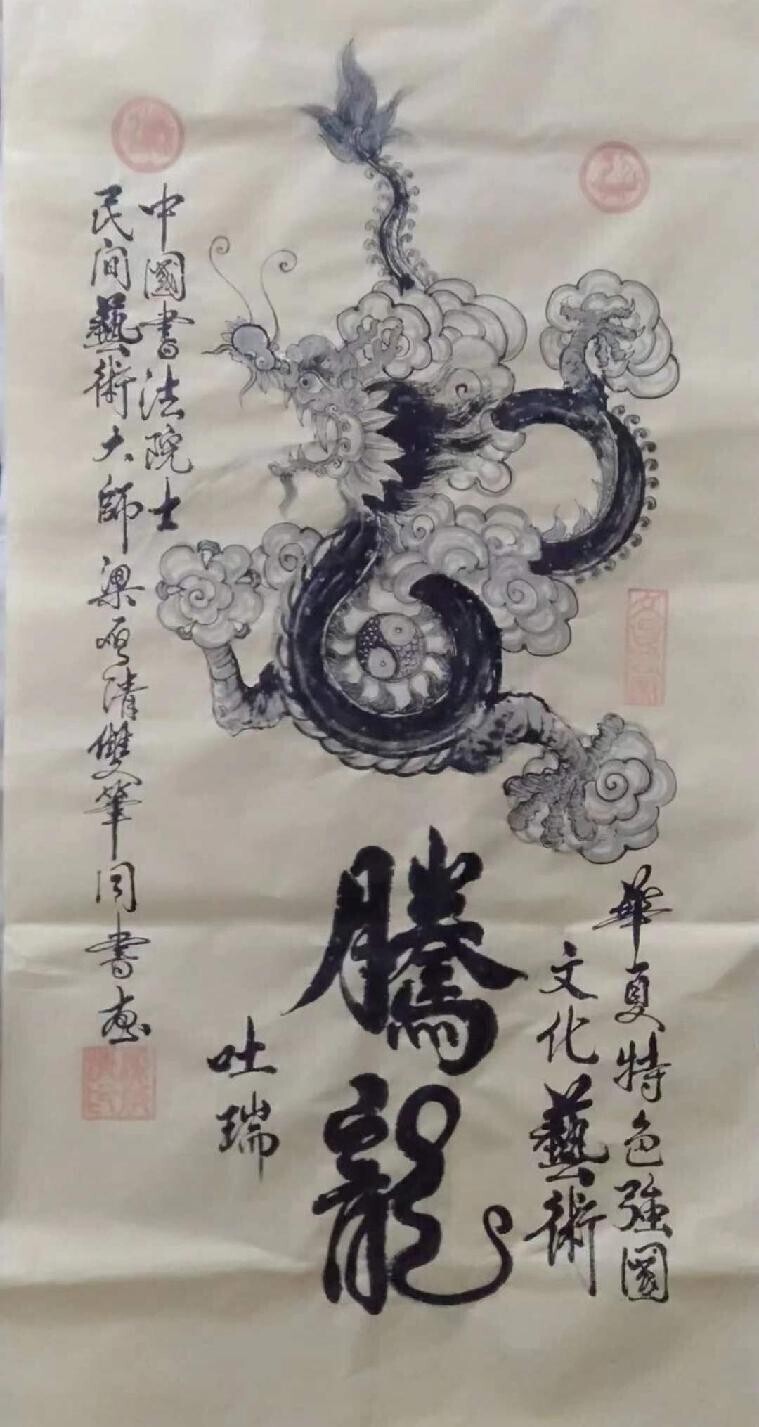 華夏特色強國
文化藝術
騰龍
吐瑞
中國書法院士
民间藝術大師梁清雙筆同書畫